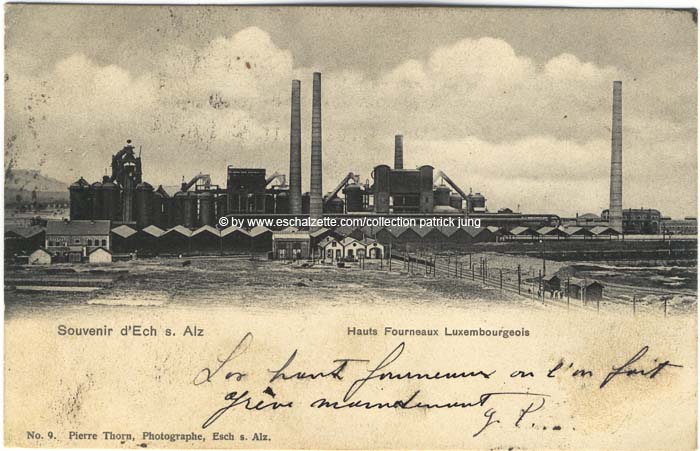 © by www.eschalzette.com/collection patrick jung
Souvenir d'Ech s. Alz
Hauts Fourneaux Luxembourgeois
Les haut fourneaux ou l'on fait
grève maintenant
No. 9. Pierre Thorn, Photographe, Esch s. Alz.